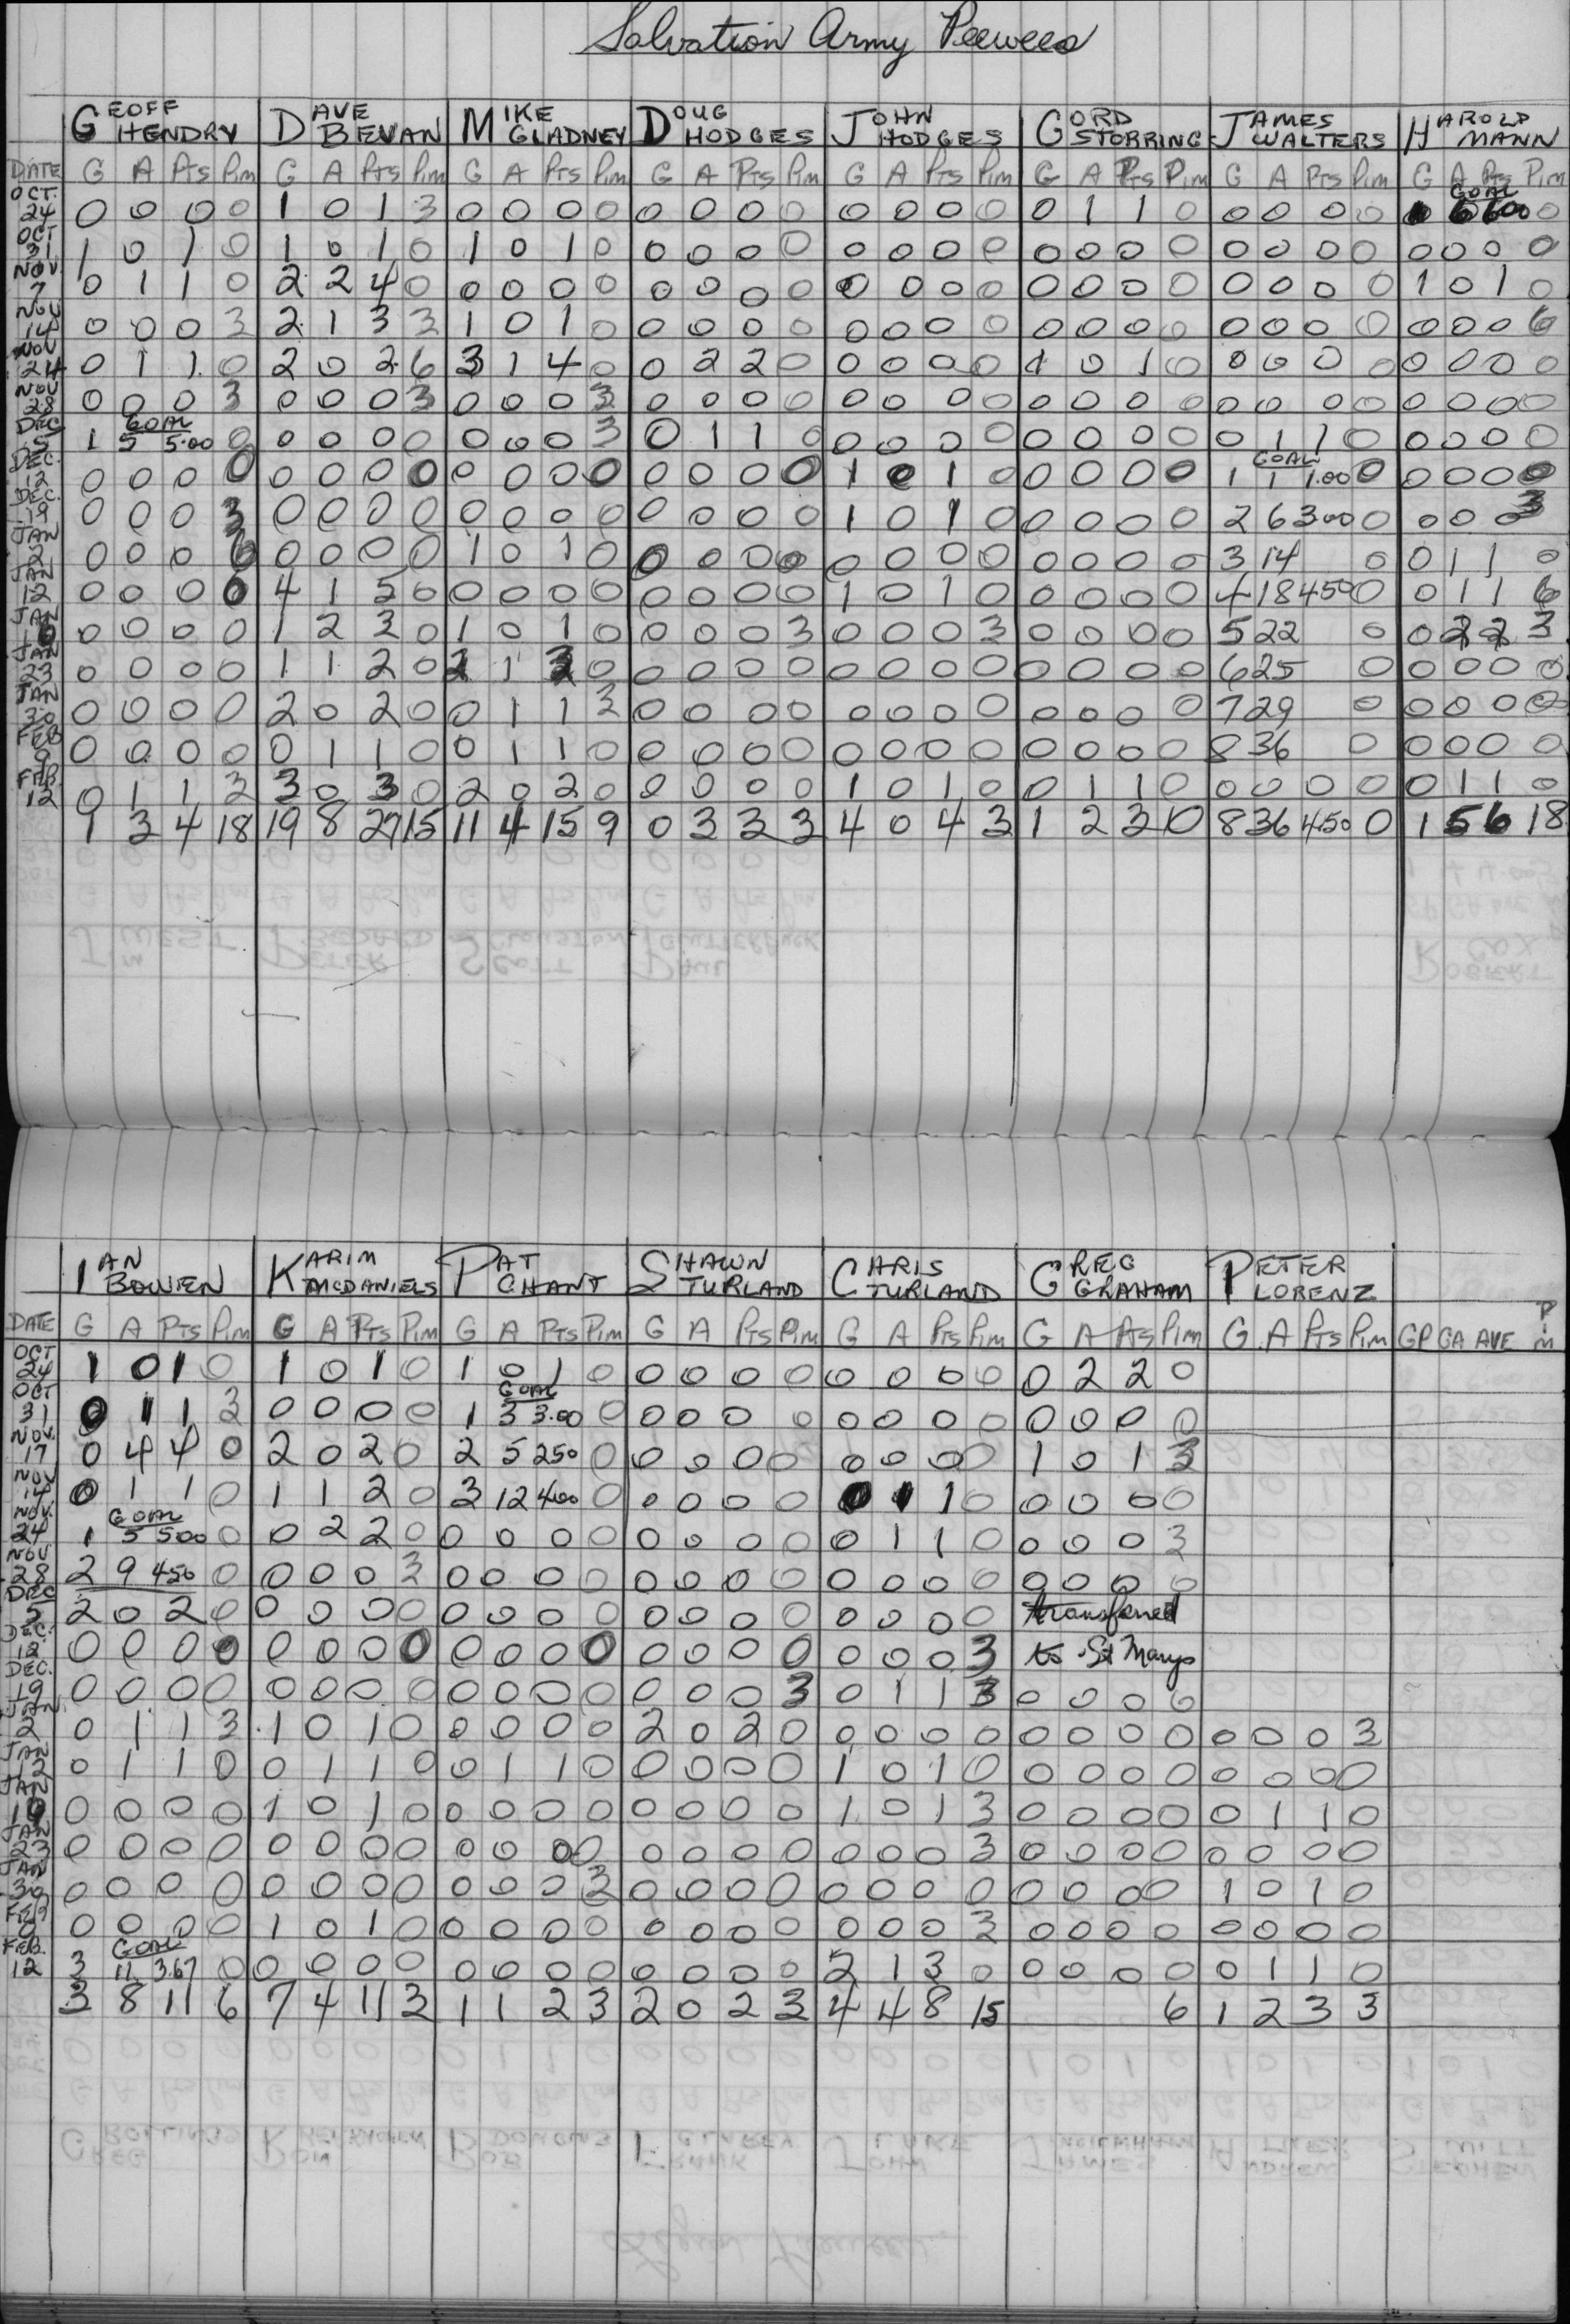 Salvation Army Peewees
GEOFF HENDRY DAVE BEVAN MIKE GLADNEY DOUG HODGES JOHN HODGES GORD STORRING JAMES WALTERS HAROLD MANN
DATE G A Pts Pim G A Pts Pim G A Pts Pim G A Pts Pim G A Pts Pim G A Pts Pim G A Pts Pim G A Pts Pim
OCT. 24 0 0 0 0 1 0 1 3 0 0 0 0 0 0 0 0 0 0 0 0 0 1 1 0 0 0 0 0 GOAL 6 6.00 0
OCT 31 1 0 1 0 1 0 1 0 1 0 1 0 0 0 0 0 0 0 0 0 0 0 0 0 0 0 0 0 0 0 0 0
NOV. 7 0 1 1 0 2 2 4 0 0 0 0 0 0 0 0 0 0 0 0 0 0 0 0 0 0 0 0 0 1 0 1 0
NOV 14 0 0 0 3 2 1 3 3 1 0 1 0 0 0 0 0 0 0 0 0 0 0 0 0 0 0 0 0 0 0 0 6
NOV 24 0 1 1 0 2 0 2 6 3 1 4 0 0 2 2 0 0 0 0 0 1 0 1 0 0 0 0 0 0 0 0 0
NOV 28 0 0 0 3 0 0 0 3 0 0 0 3 0 0 0 0 0 0 0 0 0 0 0 0 0 0 0 0 0 0 0 0
DEC 5 1 GOAL 5 5.00 0 0 0 0 0 0 0 0 3 0 1 1 0 0 0 0 0 0 0 0 0 0 1 1 0 0 0 0 0
DEC. 12 0 0 0 0 0 0 0 0 0 0 0 0 0 0 0 0 1 0 1 0 0 0 0 0 1 GOAL 1 1.00 0 0 0 0 0
DEC. 19 0 0 0 3 0 0 0 0 0 0 0 0 0 0 0 0 1 0 1 0 0 0 0 0 2 6 300 0 0 0 0 3
JAN 2 0 0 0 6 0 0 0 0 1 0 1 0 0 0 0 0 0 0 0 0 0 0 0 0 3 14 0 0 1 1 0
JAN 12 0 0 0 0 4 1 5 0 0 0 0 0 0 0 0 0 1 0 1 0 0 0 0 0 4 18 450 0 0 1 1 6
JAN 0 0 0 0 1 2 3 0 1 0 1 0 0 0 0 3 0 0 0 3 0 0 0 0 5 22 0 0 2 2 3
JAN 23 0 0 0 0 1 1 2 0 2 1 3 0 0 0 0 0 0 0 0 0 0 0 0 0 6 25 0 0 0 0 0
JAN 30 0 0 0 0 2 0 2 0 0 1 1 3 0 0 0 0 0 0 0 0 0 0 0 0 7 29 0 0 0 0 0
FEB 9 0 0 0 0 0 1 1 0 0 1 1 0 0 0 0 0 0 0 0 0 0 0 0 0 8 36 0 0 0 0 0
FEB. 12 0 1 1 3 3 0 3 0 2 0 2 0 0 0 0 0 1 0 1 0 0 1 1 0 0 0 0 0 0 1 1 0
1 3 4 18 19 8 27 15 11 4 15 9 0 3 3 3 4 0 4 3 1 2 3 0 8 36 4.50 0 1 5 6 18
IAN BOWEN KARIM MCDANIELS PAT CHANT SHAWN TURLAND CHRIS TURLAND GREG GRAHAM PETER LORENZ
DATE G A Pts Pim G A Pts Pim G A Pts Pim G A Pts Pim G A Pts Pim G A Pts Pim G A Pts Pim GP GA AVE Pim
OCT 24 1 0 1 0 1 0 1 0 1 0 1 0 0 0 0 0 0 0 0 0 0 2 2 0
OCT 31 0 1 1 3 0 0 0 0 1 GOAL 3 3.00 0 0 0 0 0 0 0 0 0 0 0 0 0
NOV. 17 0 4 4 0 2 0 2 0 2 5 250 0 0 0 0 0 0 0 0 0 1 0 1 3
NOV 14 0 1 1 0 1 1 2 0 3 12 400 0 0 0 0 0 0 1 1 0 0 0 0 0
NOV. 24 1 GOAL 5 500 0 0 2 2 0 0 0 0 0 0 0 0 0 0 1 1 0 0 0 0 3
NOV 28 2 9 450 0 0 0 0 3 0 0 0 0 0 0 0 0 0 0 0 0 0 0 0 0
DEC 5 2 0 2 0 0 0 0 0 0 0 0 0 0 0 0 0 0 0 0 0 transferred
DEC. 12 0 0 0 0 0 0 0 0 0 0 0 0 0 0 0 0 0 0 0 3 to St Marys
DEC. 19 0 0 0 0 0 0 0 0 0 0 0 0 0 0 0 3 0 1 1 3 0 0 0 0
JAN 2 0 1 1 3 1 0 1 0 0 0 0 0 2 0 2 0 0 0 0 0 0 0 0 0 0 0 0 3
JAN 12 0 1 1 0 0 1 1 0 0 1 1 0 0 0 0 0 1 0 1 0 0 0 0 0 0 0 0 0
JAN 0 0 0 0 1 0 1 0 0 0 0 0 0 0 0 0 1 0 1 3 0 0 0 0 0 1 1 0
JAN 23 0 0 0 0 0 0 0 0 0 0 0 0 0 0 0 0 0 0 0 3 0 0 0 0 0 0 0 0
JAN 30 0 0 0 0 0 0 0 0 0 0 0 3 0 0 0 0 0 0 0 0 0 0 0 0 1 0 1 0
FEB 9 0 0 0 0 1 0 1 0 0 0 0 0 0 0 0 0 0 0 0 3 0 0 0 0 0 0 0 0
FEB. 12 3 GOAL 11 3.67 0 0 0 0 0 0 0 0 0 0 0 0 0 2 1 3 0 0 0 0 0 0 1 1 0
3 8 11 6 7 4 11 3 1 1 2 3 2 0 2 3 4 4 8 15 6 1 2 3 3